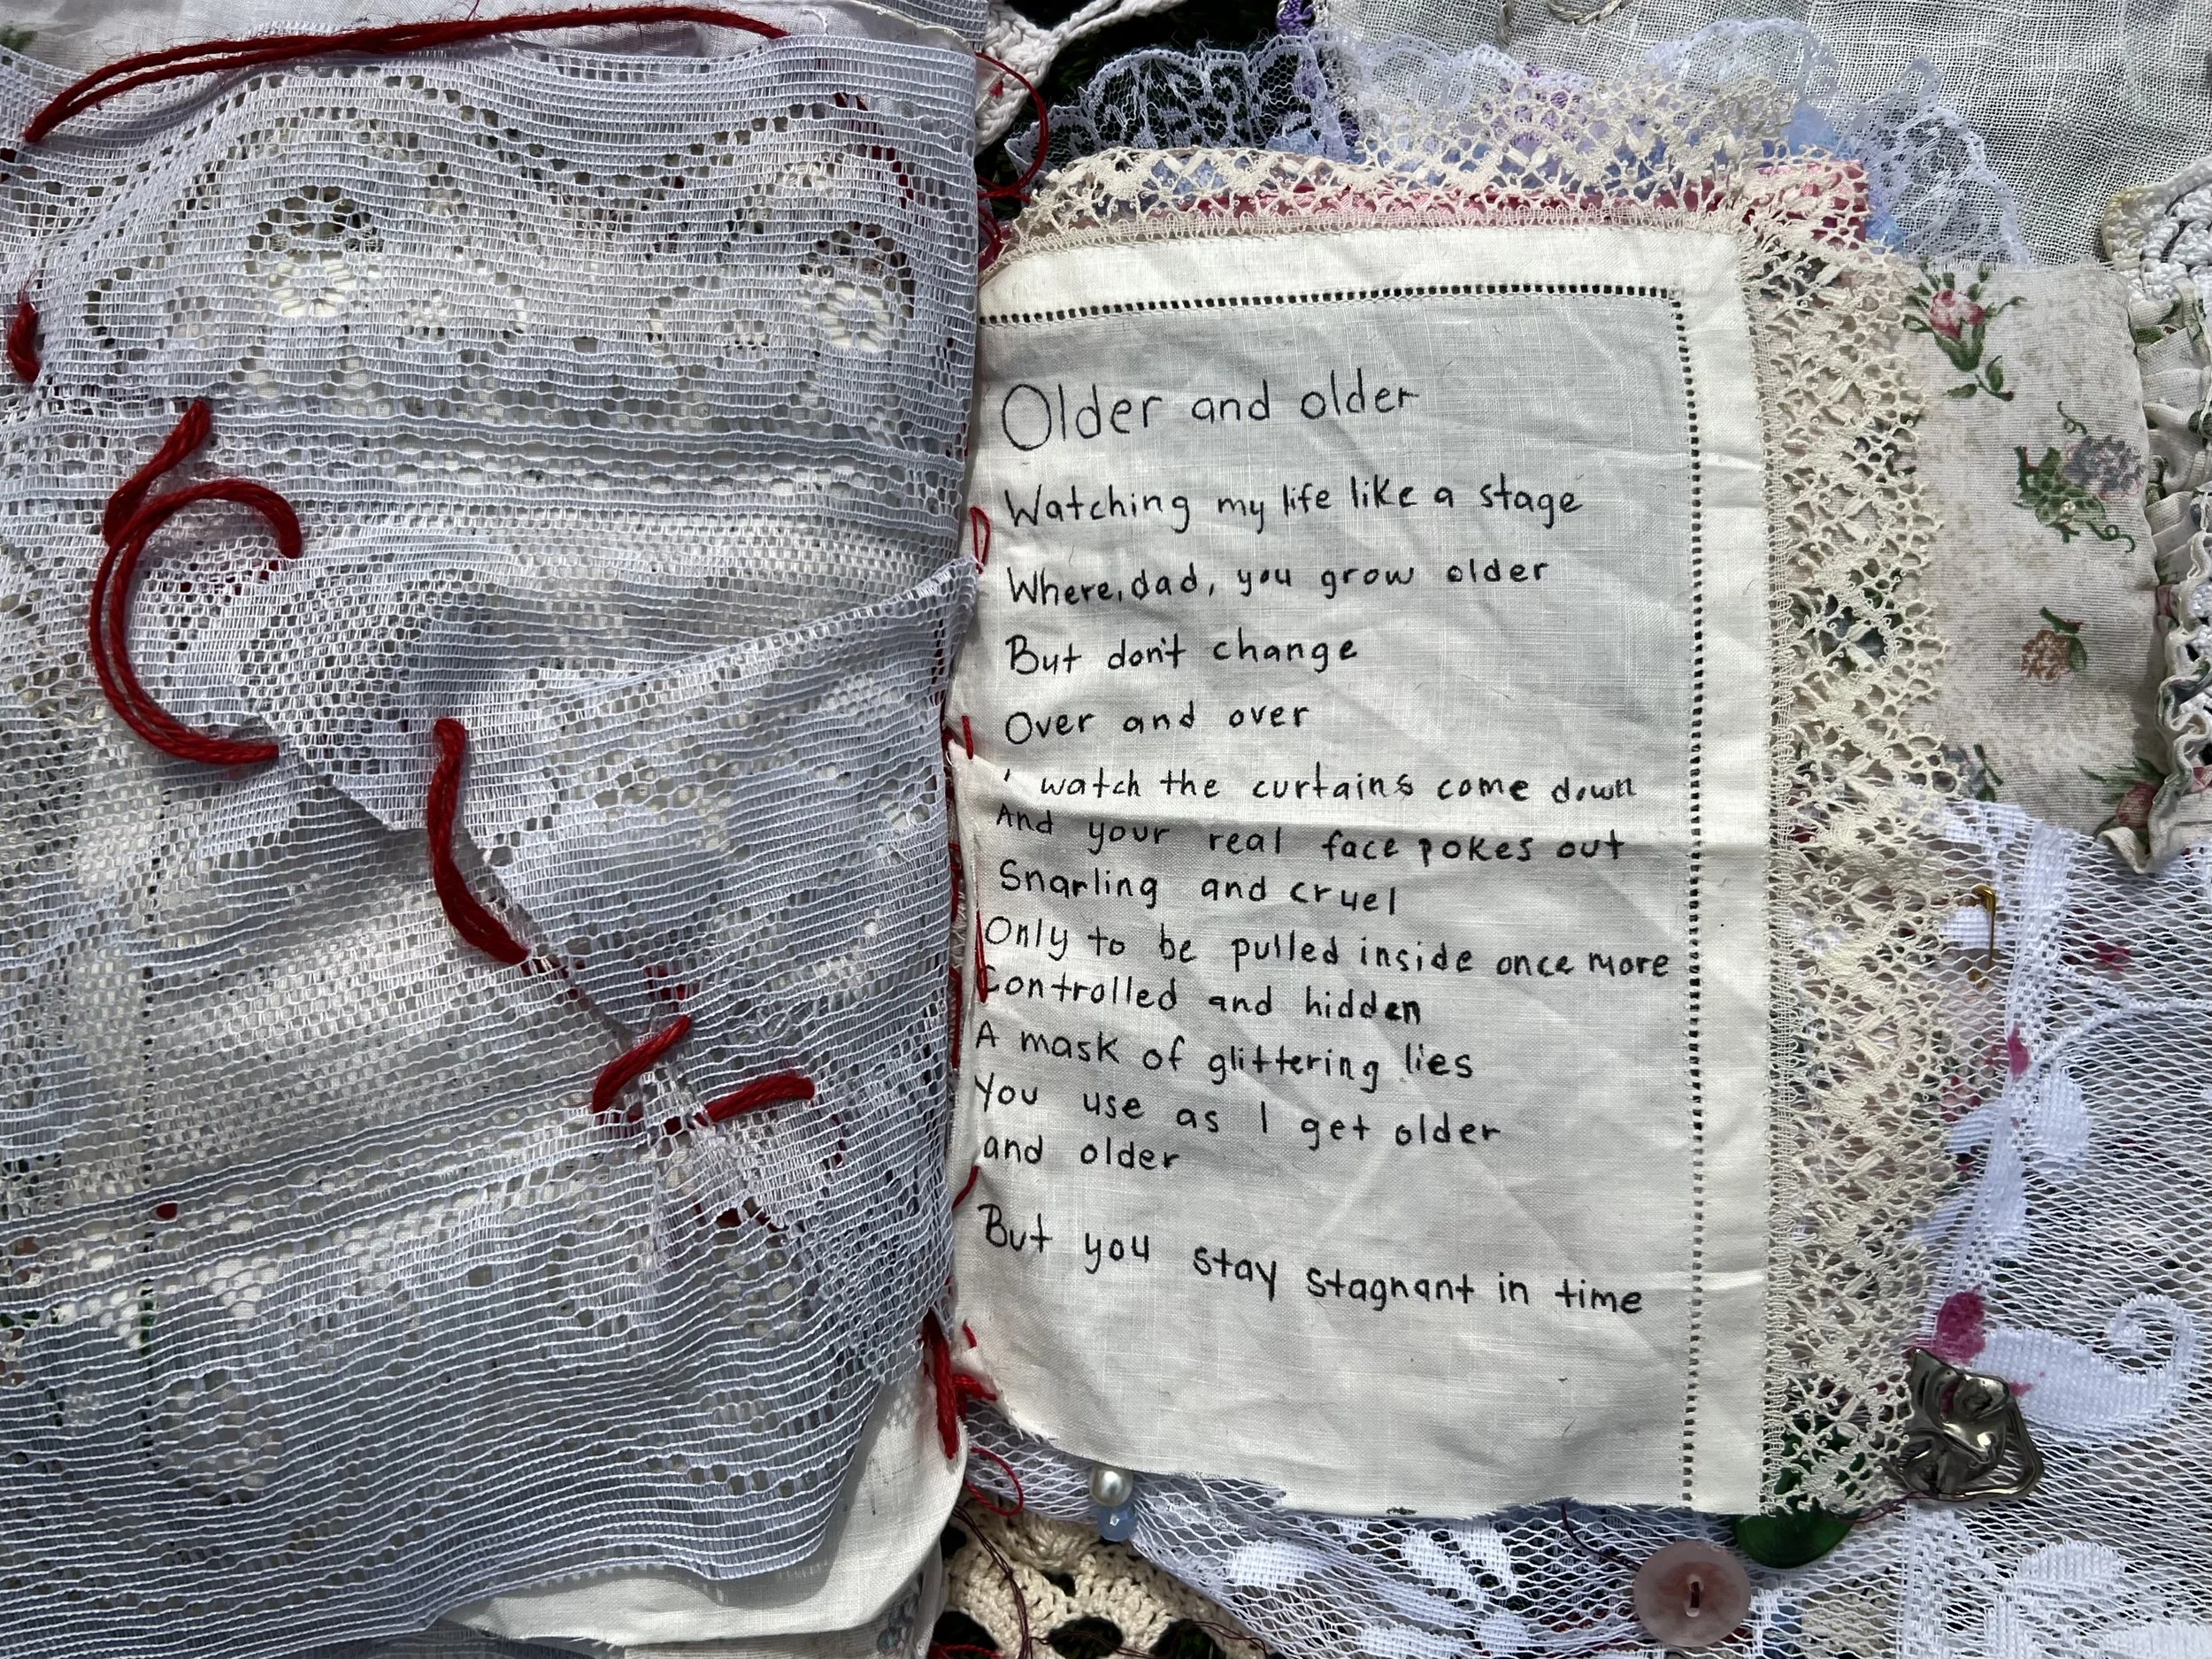 Older and older
Watching my life like a stage
Where, dad, you grow older
But don't change
Over and over
I watch the curtains come down
And your real face pokes out
Snarling and cruel
Only to be pulled inside once more
Controlled and hidden
A mask of glittering lies
You use as I get older
and older
But you stay stagnant in time